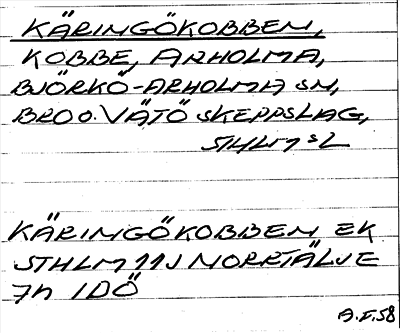 KÄRINGÖKOBBEN,
KOBBE, ARHOLMA,
BJÖRKÖ-ARHOLMA SN,
BRO O. VÄTÖ SKEPPSLAG,
STHLMS L
KÄRINGÖKOBBEN EK
STHLM 11J NORRTÄLJE
7h IDÖ
A.I.58